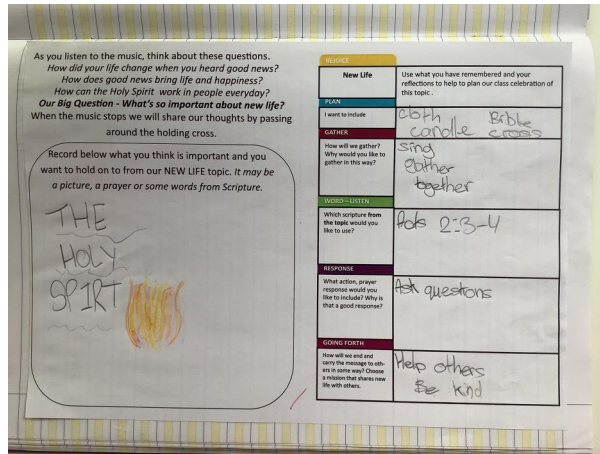 As you listen to the music, think about these questions.
How did your life change when you heard good news?
How does good news bring life and happiness?
How can the Holy Spirit work in people everyday?
Our Big Question - What's so important about new life?
When the music stops we will share our thoughts by passing
around the holding cross.
Record below what you think is important and you
want to hold on to from our NEW LIFE topic. It may be
a picture, a prayer or some words from Scripture.
THE
HOLY
SPIRT
REJOICE
New Life
Use what you have remembered and your
reflections to help to plan our class celebration of
this topic.
PLAN
I want to include
cloth Bible
candle cross
GATHER
How will we gather?
Why would you like to
gather in this way?
sing
gather
together
WORD – LISTEN
Which scripture from
the topic would you
like to use?
Acts 2:3-4
RESPONSE
What action, prayer
response would you
like to include? Why is
that a good response?
Ask questions
GOING FORTH
How will we end and
carry the message to oth-
ers in some way? Choose
a mission that shares new
life with others.
Help others
Be kind